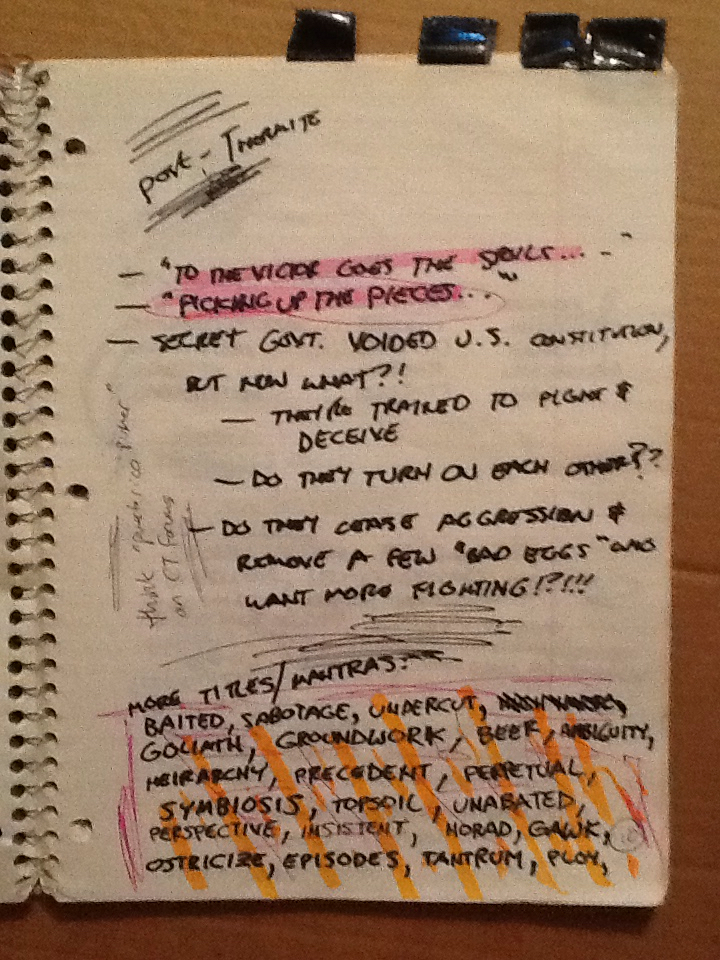 post-Thermite
— "TO THE VICTOR GOES THE SPOILS... - "
— "PICKING UP THE PIECES..."
— SECRET GOVT. VOIDED U.S. CONSTITUTION,
BUT NOW WHAT?!
— THEY'RE TRAINED TO FIGHT &
DECEIVE
— DO THEY TURN ON EACH OTHER??
— DO THEY CEASE AGGRESSION &
REMOVE A FEW "BAD EGGS" WHO
WANT MORE FIGHTING!?!!!
think
on CT Forums
MORE TITLES/MANTRAS:
BAITED, SABOTAGE, UNDERCUT,
GOLIATH, GROUNDWORK, BEER, AMBIGUITY,
HEIRARCHY, PRECEDENT, PERPETUAL,
SYMBIOSIS, TOPSOIL, UNABATED,
PERSPECTIVE, INSISTENT, MORAD, GAWK,
OSTRICIZE, EPISODES, TANTRUM, PLOY,